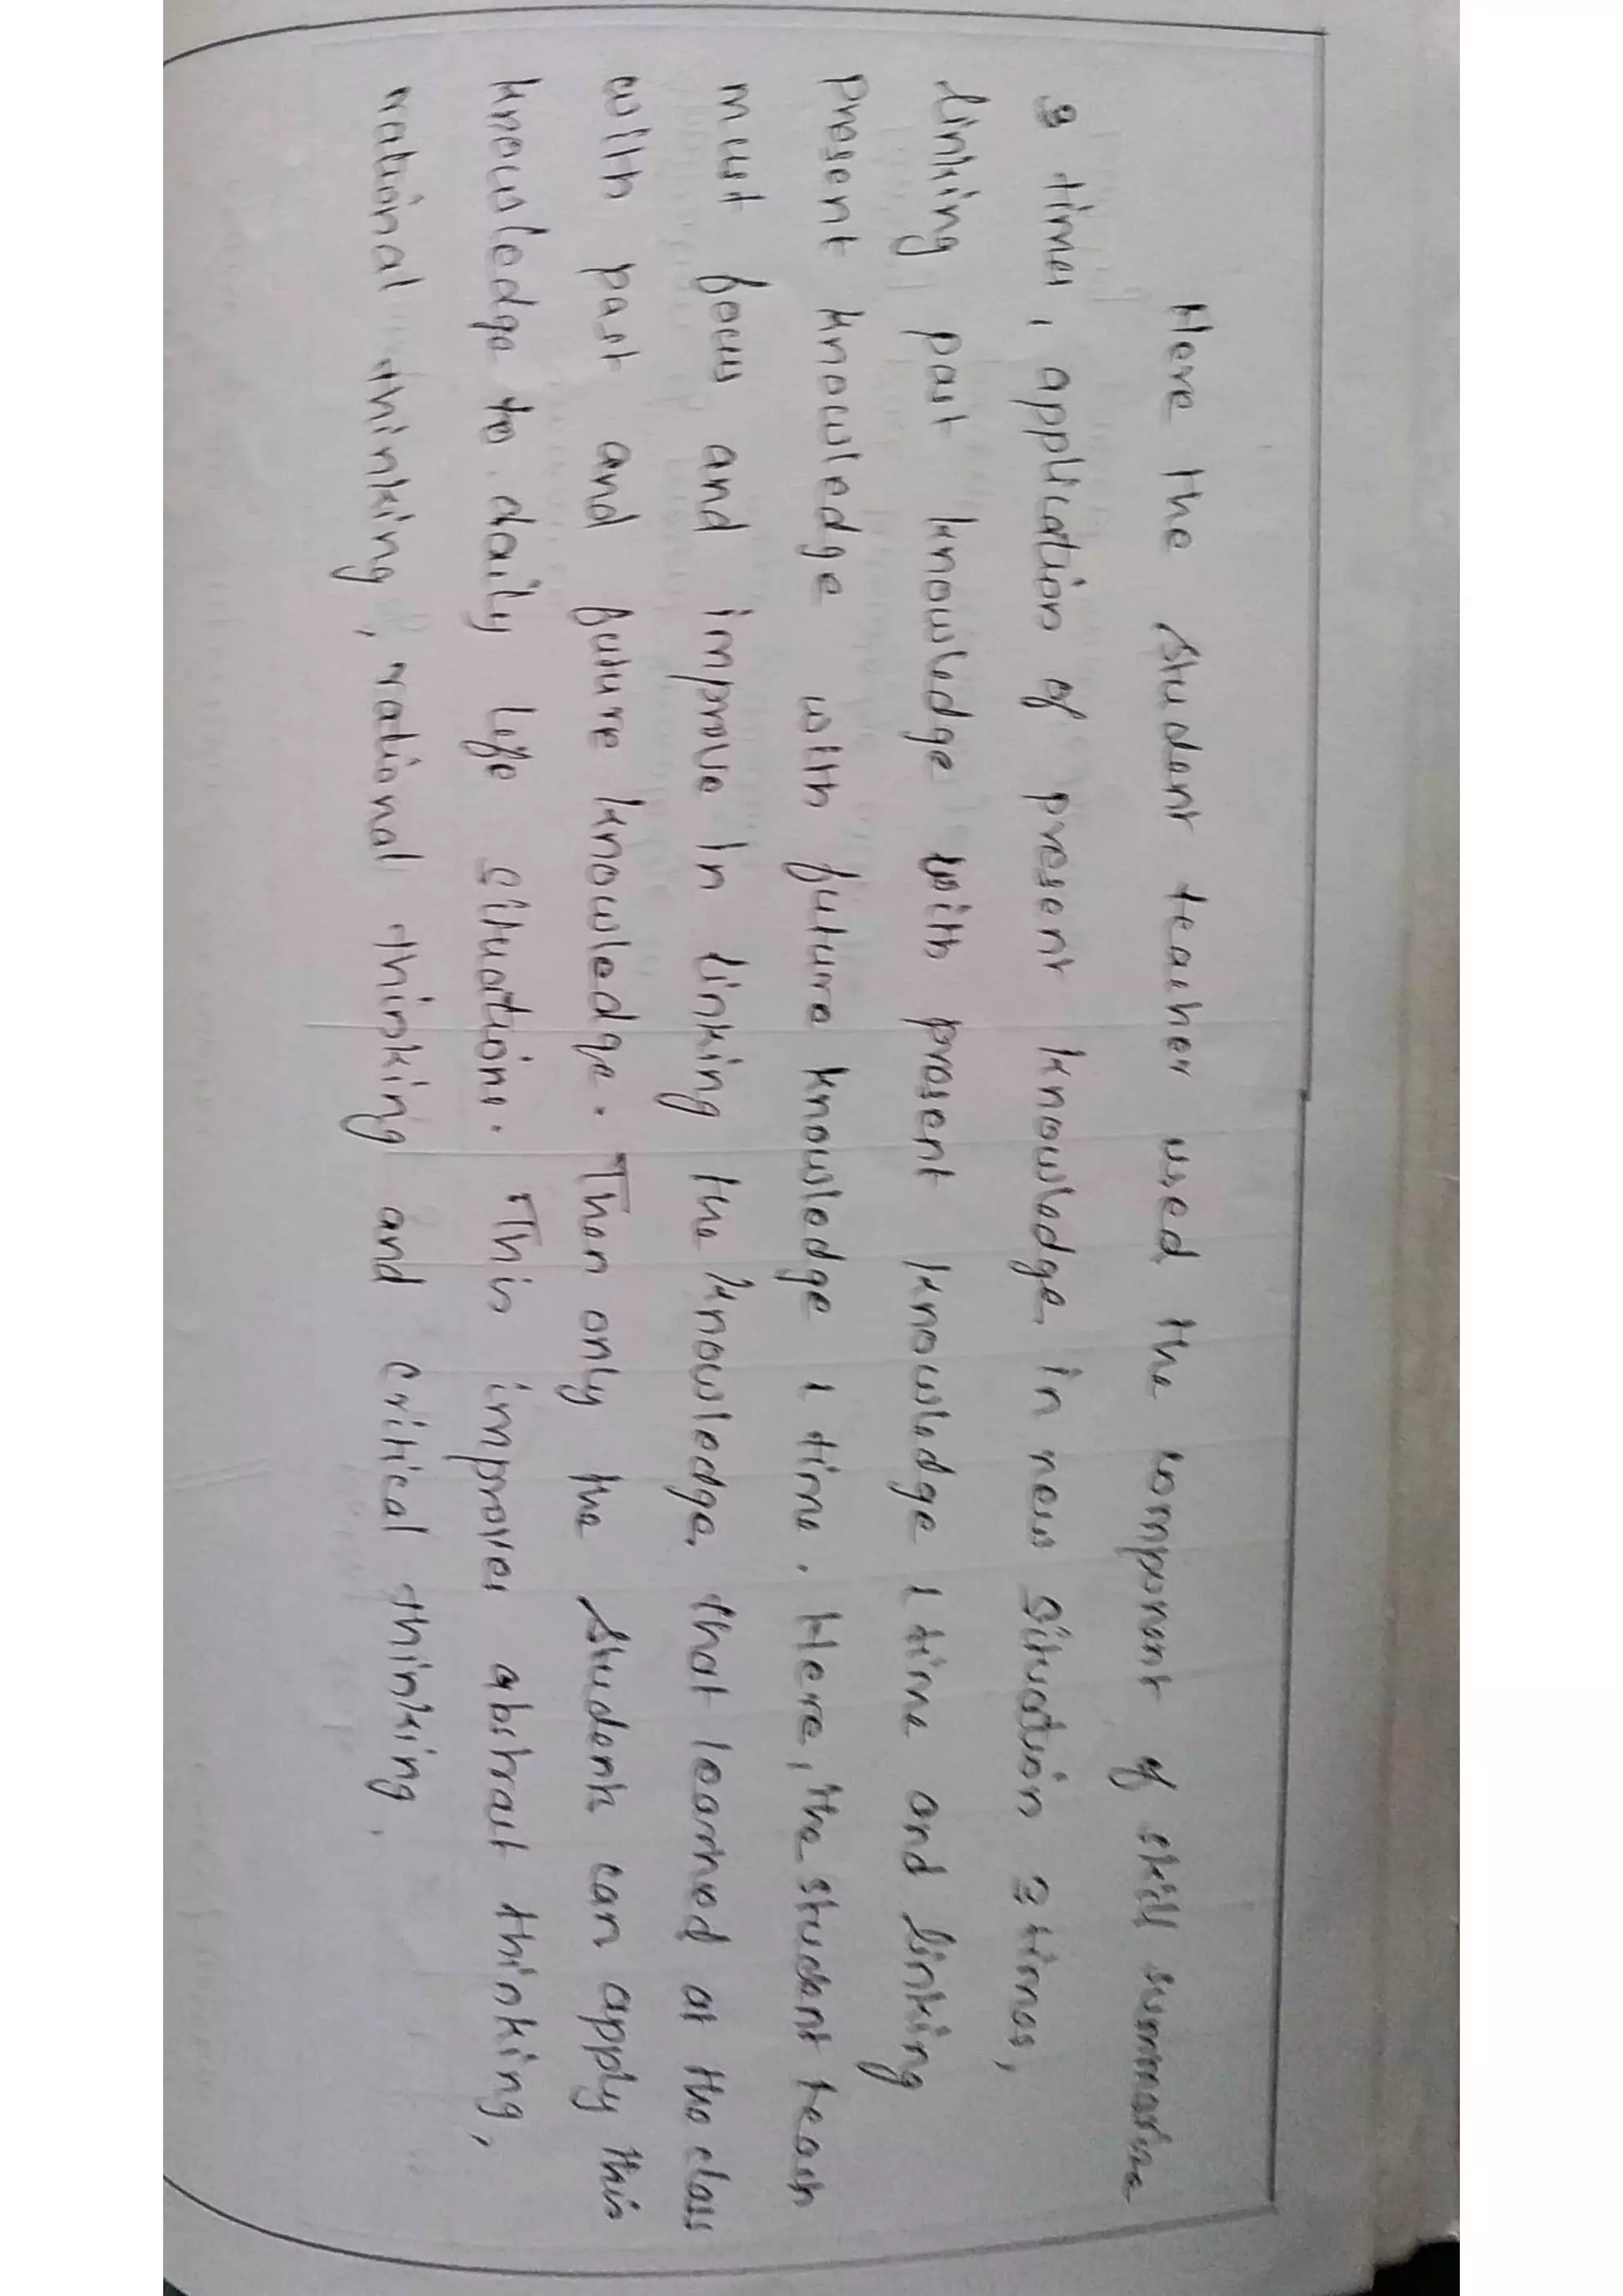 Here the student teacher used the component of skill summarise
3 times, application of present knowledge in new situation 2 times,
linking past knowledge with present knowledge 1 time and linking
present knowledge with future knowledge 1 time. Here, the student teach
must focus and improve in linking the knowledge that learned at the class
with past and future knowledge. Then only the students can apply this
knowledge to daily life situations. This improves abstract thinking,
rational thinking, rational thinking and critical thinking.